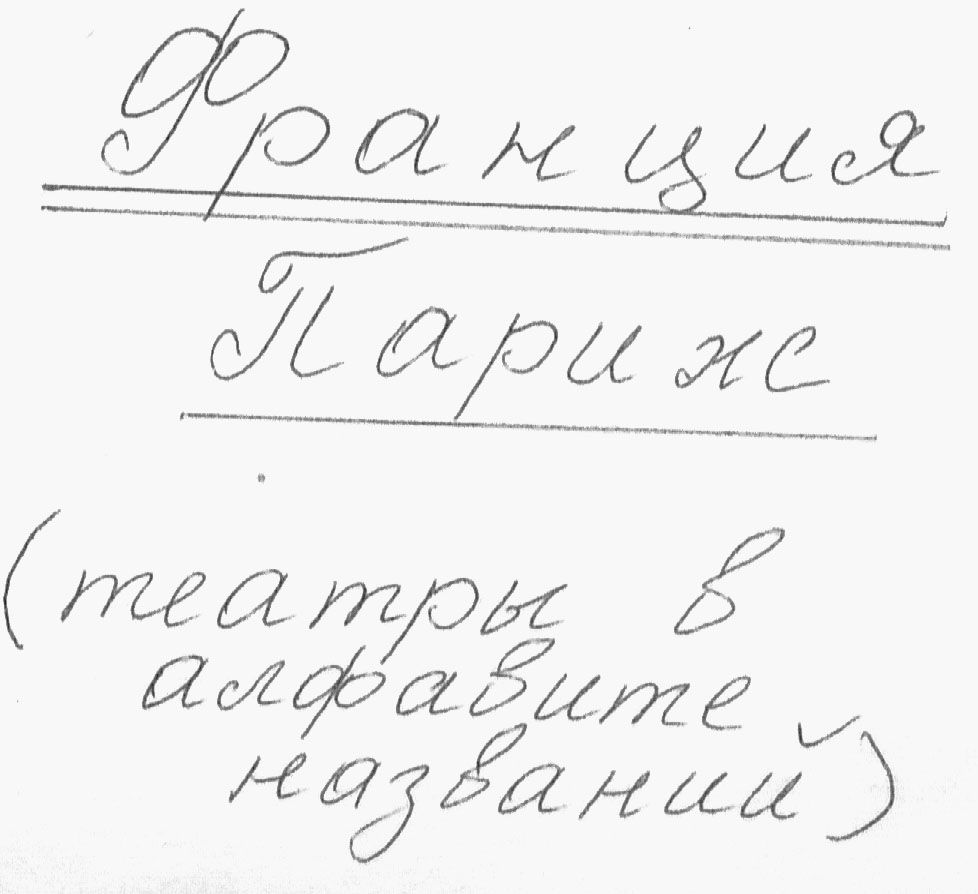 Франция
Париж
(театры в
алфавите
названий)